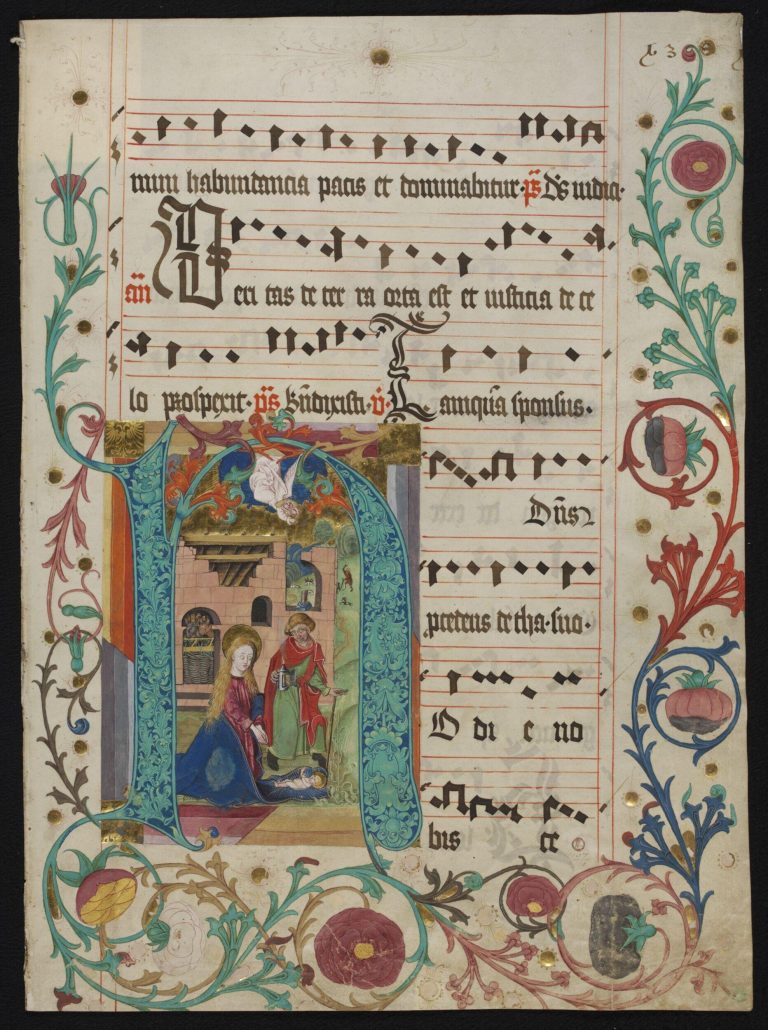 mini habundancia pacis et dominabitur. p̄s Ds iudica.
añ Veri tas de ter ra orta est et iusticia de ce
lo prospexit. p̄s B̄ndixisti. v̄. Tamqua sponsus.
Dn̄s
procedens de tha. suo.
O di e no
bis ce